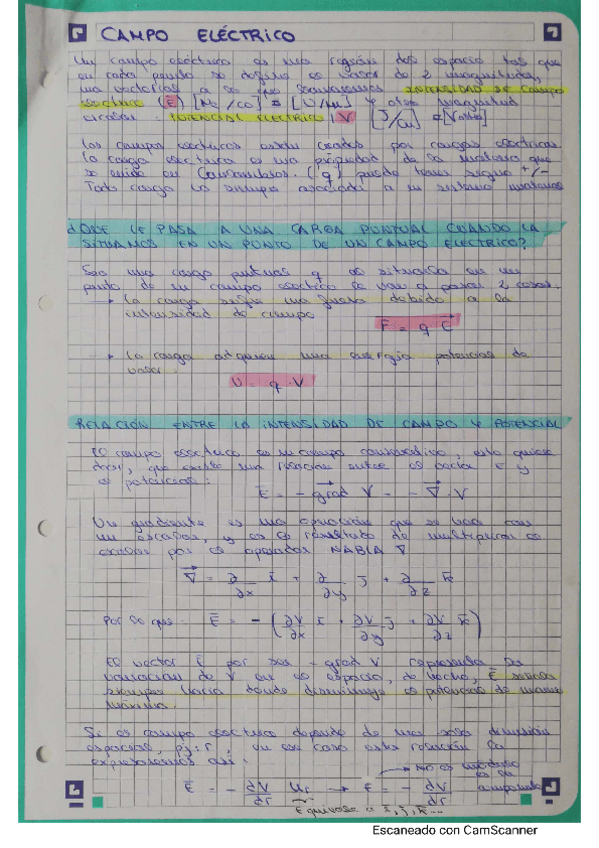 CAMPO ELÉCTRICO
Un campo eléctrico es una región del espacio tal que
en cada punto se define el valor de 2 magnitudes,
una vectorial a la que llamaremos INTENSIDAD DE CAMPO
eléctrico (E) [N/C] = [V/m] y otra magnitud
escalar POTENCIAL ELÉCTRICO V [J/C] = [Voltio]
Los campos eléctricos están creados por cargas eléctricas
La carga eléctrica es una propiedad de la materia que
se mide en Coulombios. (q) puede tener signo +/-
Toda carga va siempre asociada a un sistema material
¿QUÉ LE PASA A UNA CARGA PUNTUAL CUANDO LA
SITUAMOS EN UN PUNTO DE UN CAMPO ELÉCTRICO?
Sea una carga puntual q al situarla en un
punto de un campo eléctrico le van a pasar 2 cosas.
La carga sufre una fuerza debido a la
intensidad de campo
F = q E
La carga adquiere una energía potencial de
valor.
U = q · V
RELACIÓN ENTRE LA INTENSIDAD DE CAMPO Y POTENCIAL
El campo eléctrico es un campo conservativo, esto quiere
decir, que existe una relación entre el vector E y
el potencial:
E = - grad V = - ∇ · V
Un gradiente es una operación que se hace con
un escalar, y es el resultado de multiplicar el
escalar por el operador NABLA ∇
∇ = ∂/∂x i + ∂/∂y j + ∂/∂z k
Por lo que: E = - (∂V/∂x i + ∂V/∂y j + ∂V/∂z k)
El vector E por ser - grad V representa la
variación de V en el espacio, de hecho, E señala
siempre hacia donde disminuye el potencial de manera
máxima.
Si el campo eléctrico depende de una sola dimensión
espacial, pj: r, en ese caso esta relación la
expresamos así:
E = - dV/dr Ur → E = - dV/dr
Equivale a i, j, k...
Escaneado con CamScanner